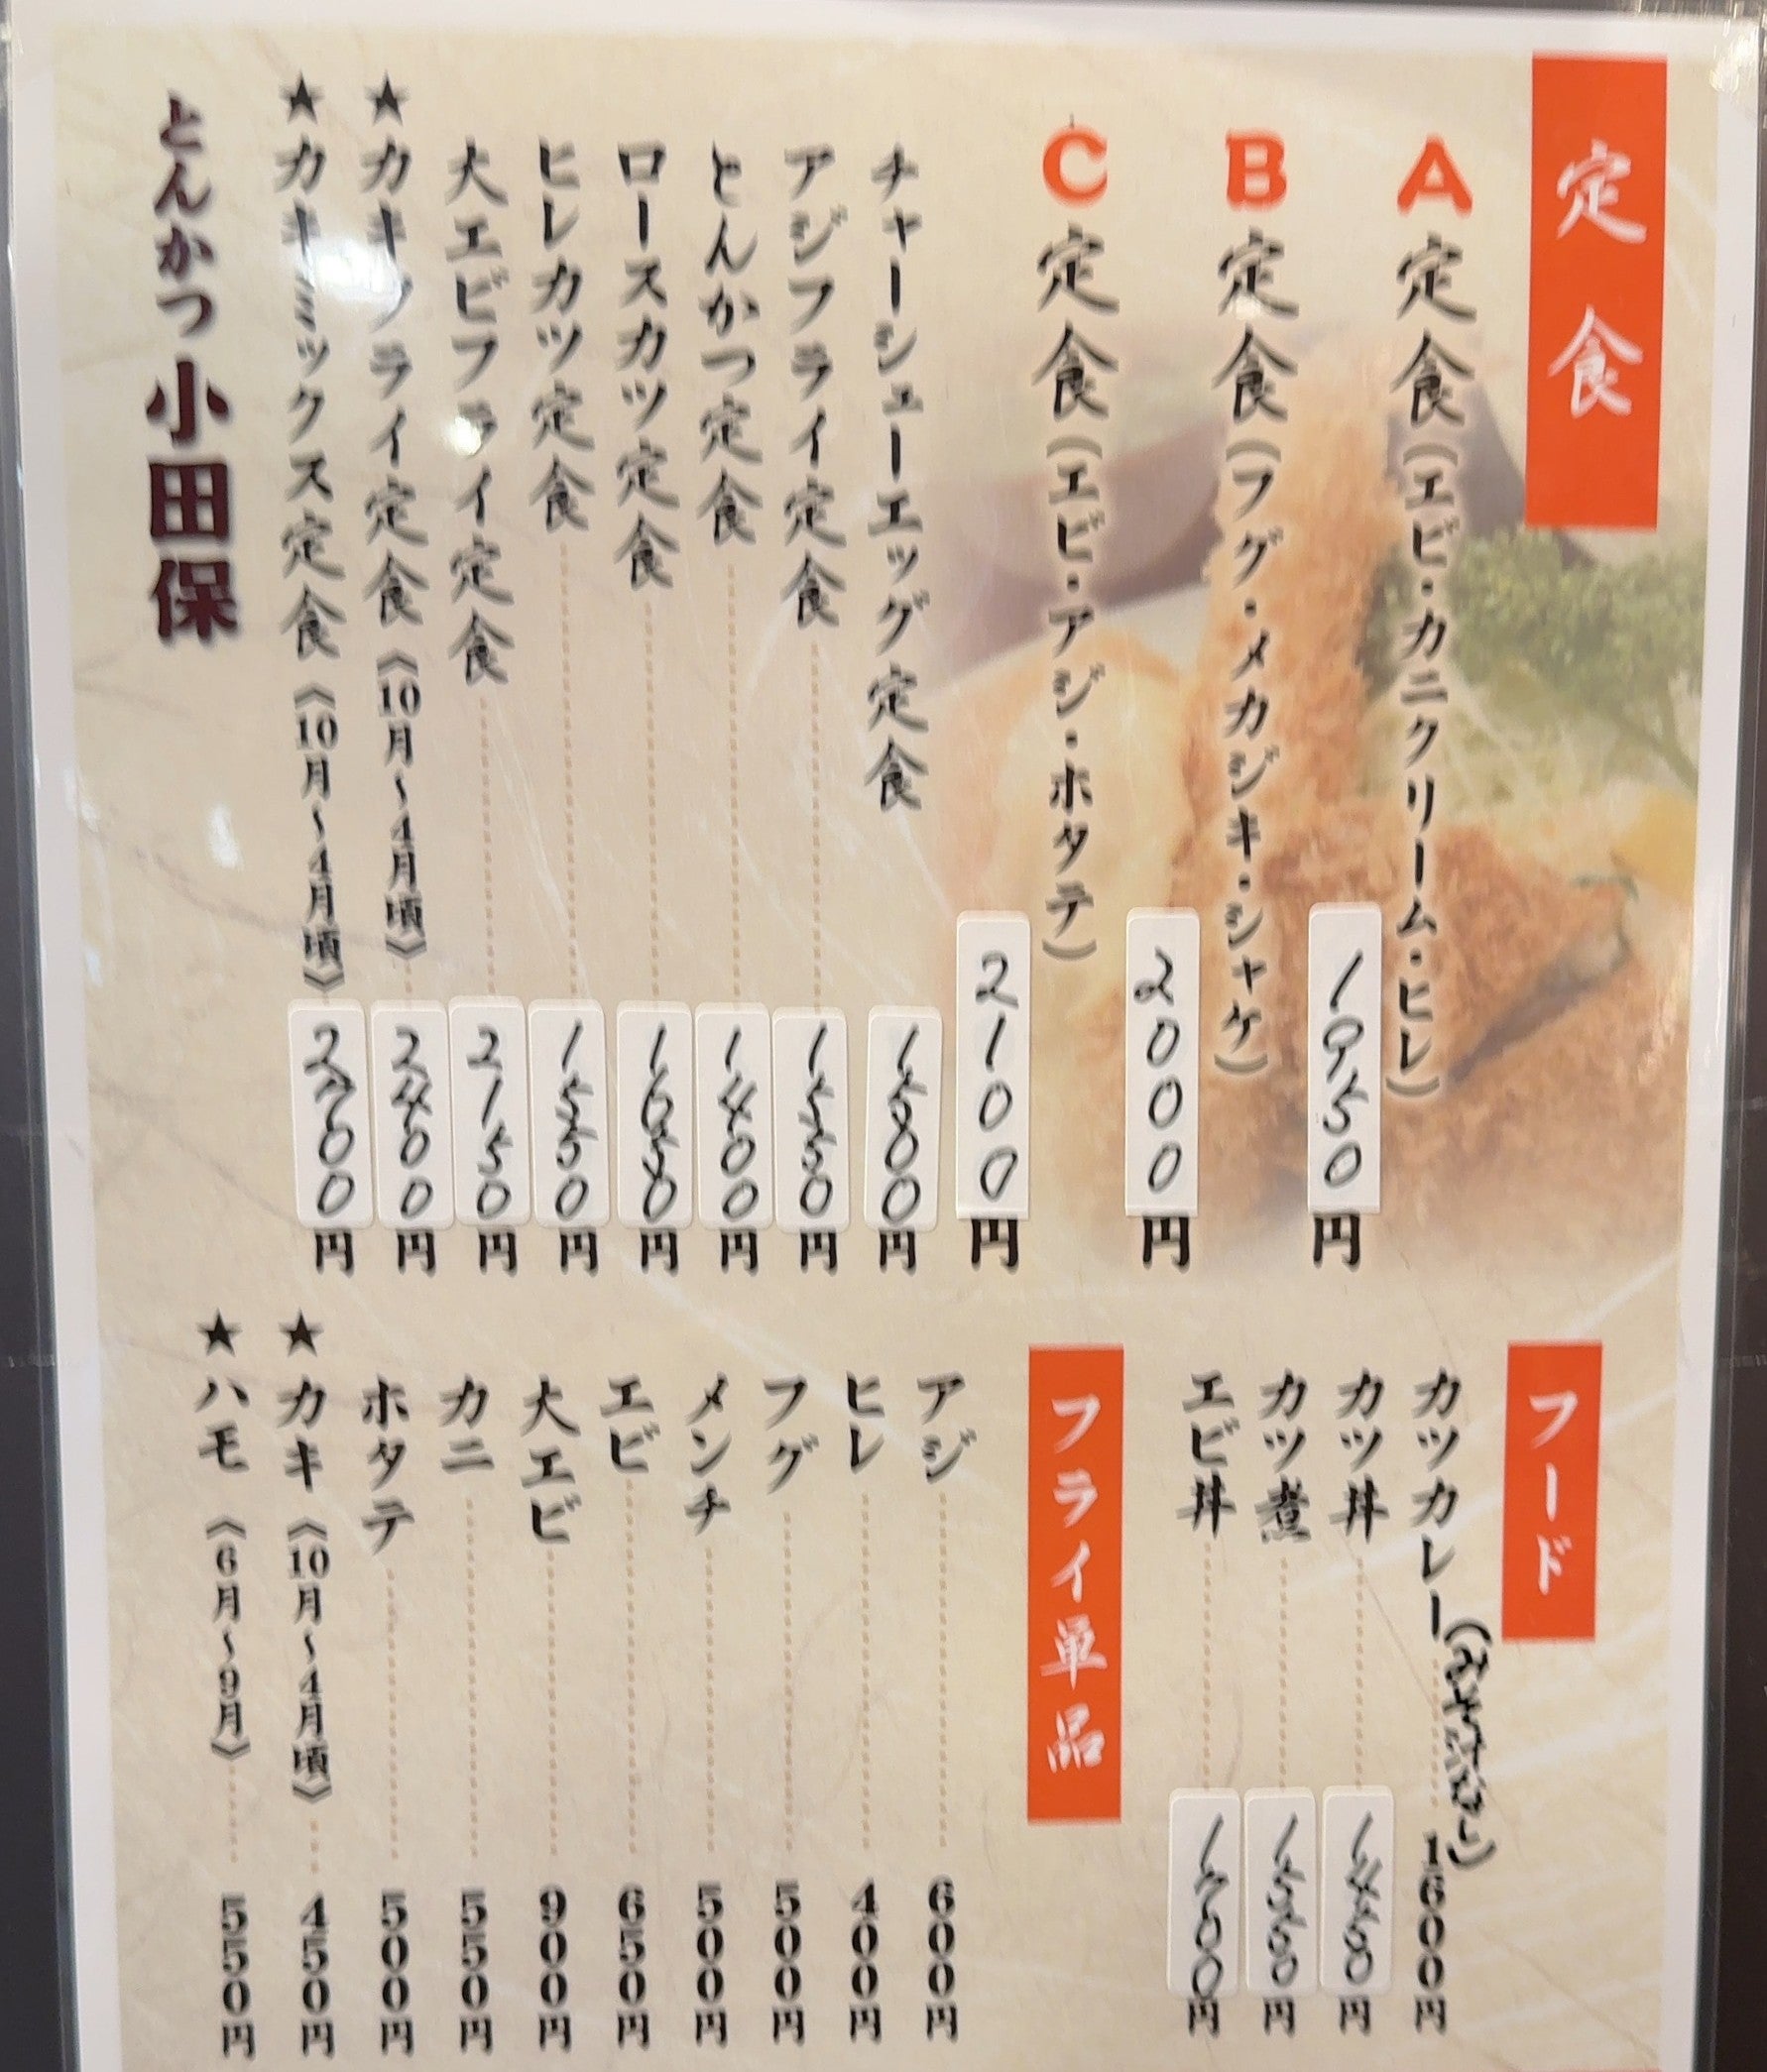 定食
A定食(エビ・カニクリーム・ヒレ) 1950円
B定食(フグ・メカジキ・シャケ) 2000円
C定食(エビ・アジ・ホタテ) 2100円
チャーシューエッグ定食 1500円
アジフライ定食 1550円
とんかつ定食 1400円
ロースカツ定食 1650円
ヒレカツ定食 1550円
大エビフライ定食 2150円
★カキフライ定食《10月〜4月頃》 2400円
★カキミックス定食《10月〜4月頃》 2700円
とんかつ小田保
フード
カツカレー 1600円
カツ丼 1450円
カツ煮 1550円
エビ丼 1700円
フライ単品
アジ 600円
ヒレ 400円
フグ 500円
メンチ 500円
エビ 650円
大エビ 900円
カニ 550円
ホタテ 500円
★カキ《10月〜4月頃》 450円
★ハモ《6月〜9月》 550円